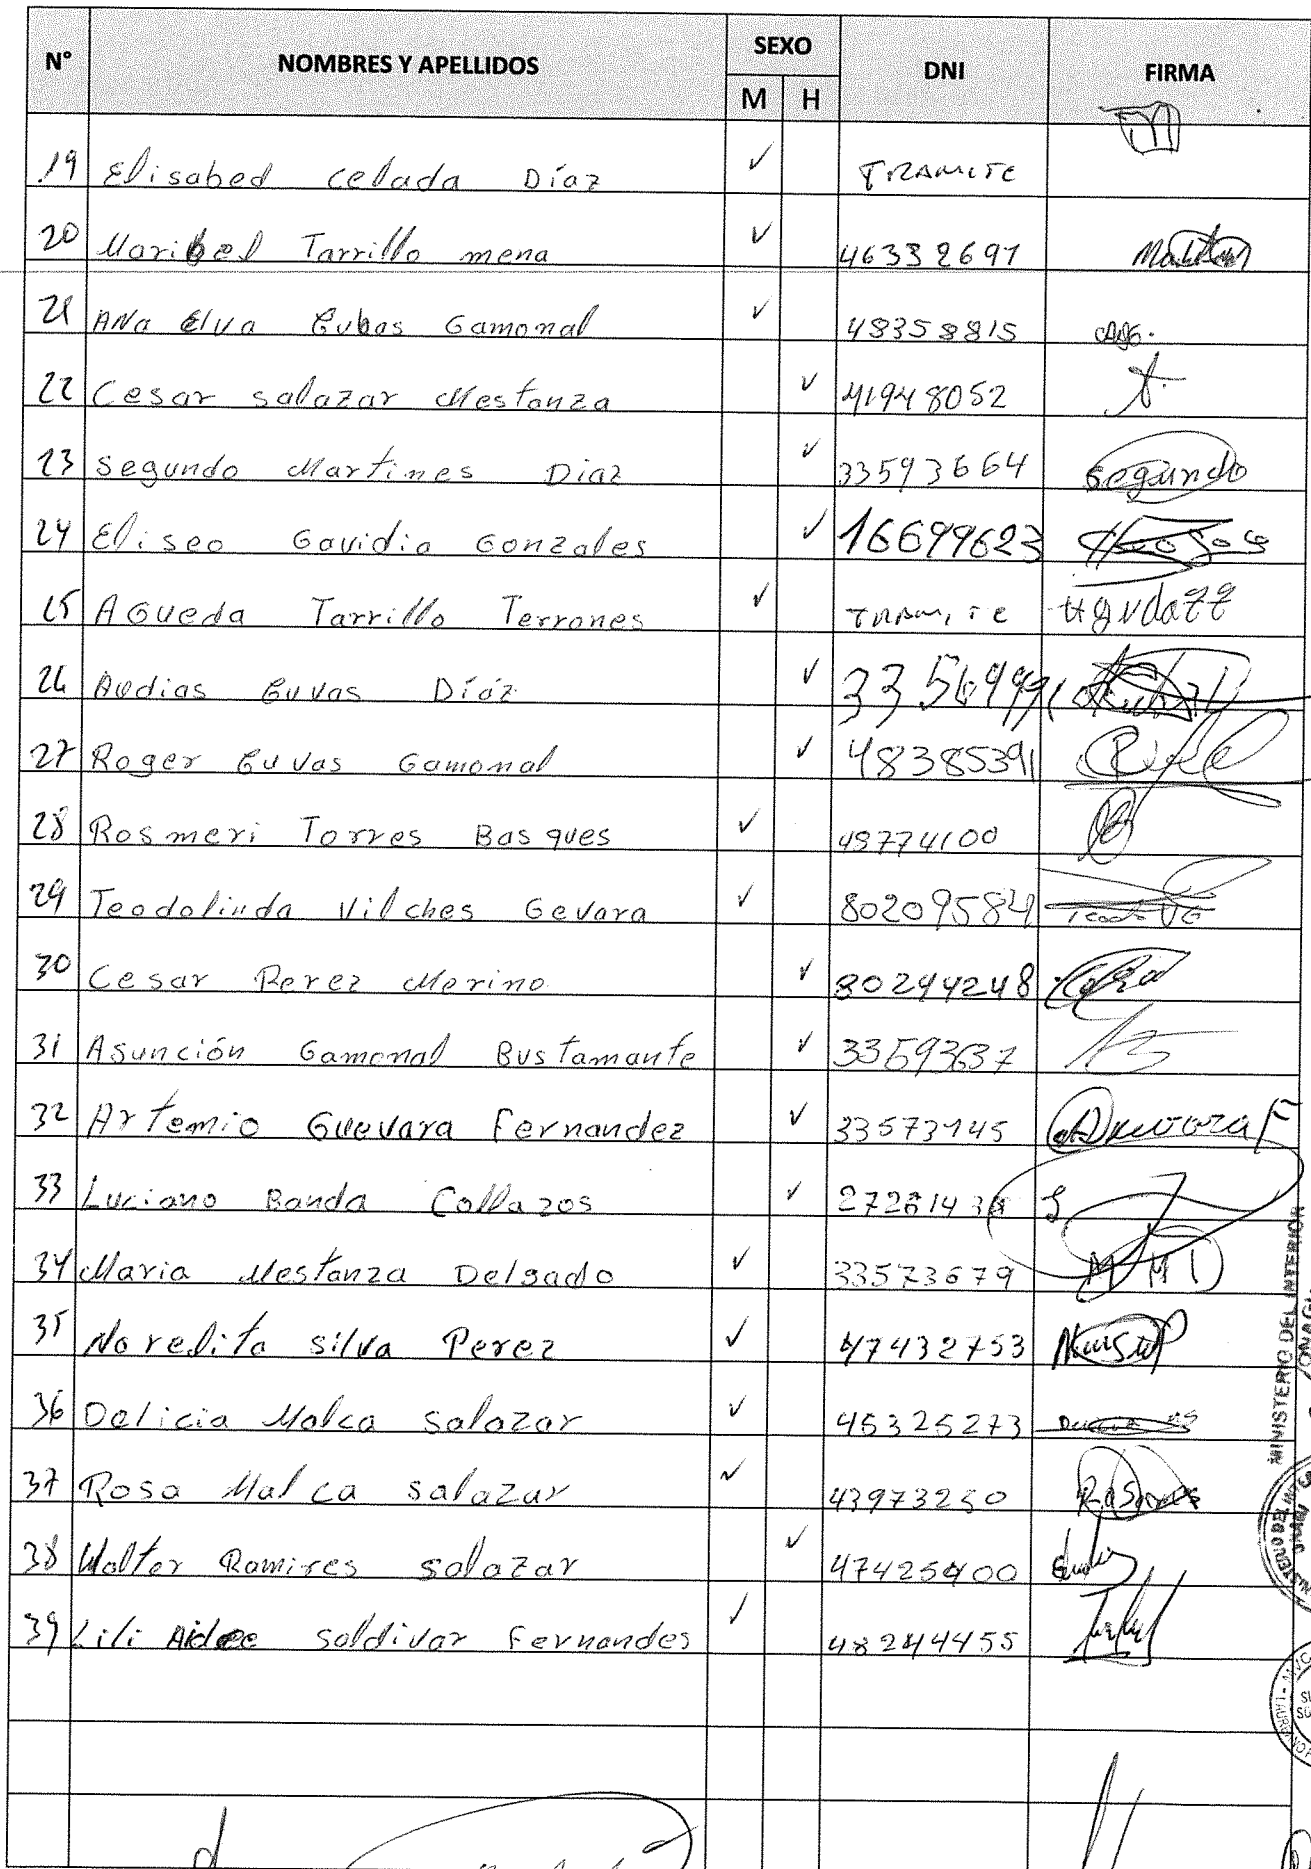 N° NOMBRES Y APELLIDOS SEXO DNI FIRMA
M H
19 Elisabed celada Díaz ✓ TRAMITE
20 Maribel Tarrillo mena ✓ 46332697
21 ANa elva Cubas Gamonal ✓ 48358815
22 Cesar salazar Mestanza ✓ 41948052
23 Segundo Martines Diaz ✓ 33593664 Segundo
24 Eliseo Gavidia Gonzales ✓ 16699623
25 AGueda Tarrillo Terrones ✓ TRAMITE
26 Audias Cuvas Díaz ✓
27 Roger Cuvas Gamonal ✓ 48385391
28 Rosmeri Torres Basques ✓ 48774100
29 Teodolinda Vilches Gevara ✓ 80209584
30 Cesar Perez Merino ✓ 80294248
31 Asunción Gamonal Bustamante ✓ 33593637
32 Artemio Guevara Fernandez ✓ 33573145
33 Luciano Banda Collazos ✓
34 Maria Mestanza Delgado ✓ 33573679 MMD
35 Norelita silva Perez ✓ 47432753
36 Delicia Malca Salazar ✓ 45325273
37 Rosa Malca salazar ✓ 43973250
38 Walter Ramires salazar ✓ 47425400
39 Lili Aidee saldivar Fernandes ✓ 48244455
MINISTERIO DEL INTERIOR